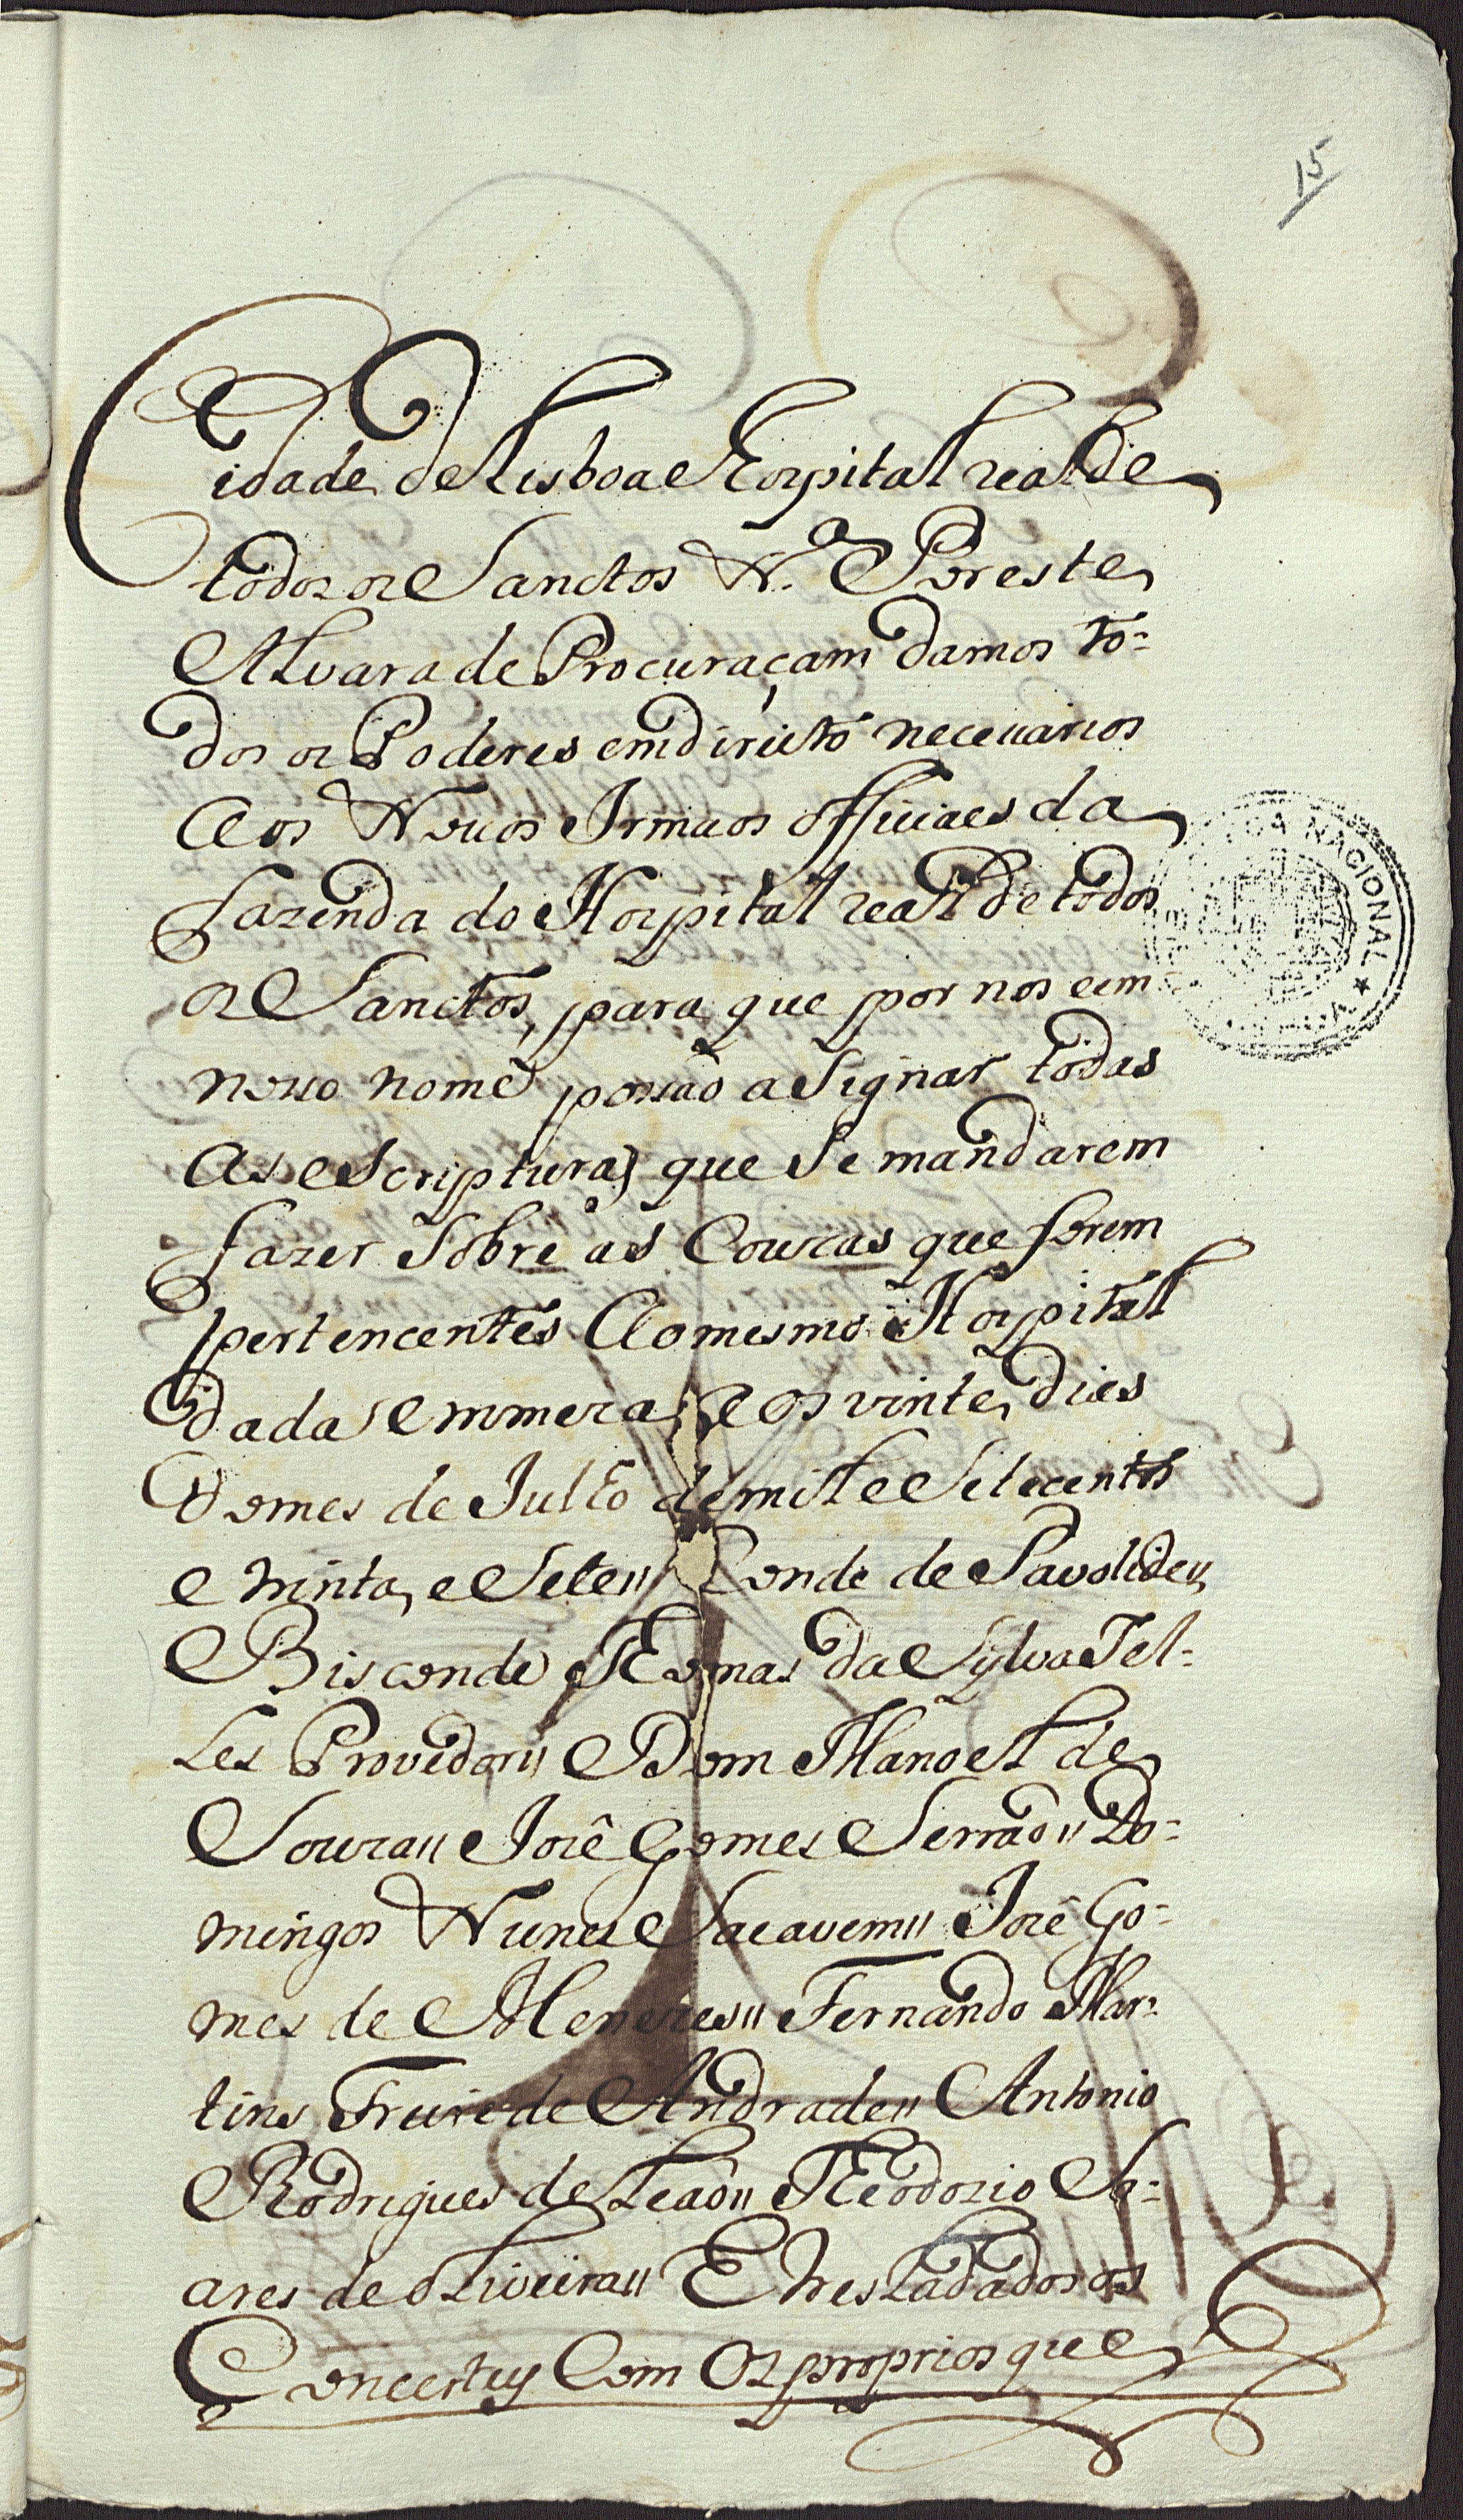 15
Cidade de Lisboa e Hospital real de
todos os Sanctos Nª. Por este
Alvara de Procuraçam damos to=
dos os Poderes em direito necessarios
Aos Nossos Irmaos officiaes da
fazenda do Hospital real de todos
os Sanctos, para que por nos e em
nosso nome possaõ asignar todas
As escripturas que se mandarem
fazer sobre as Couzas que forem
pertencentes Ao mesmo Hospital
dada em meza, Aos vinte dias
do mes de Julho de mil e Setecentos
e trinta, e Sete,, Conde de Pavolide,,
Bisconde Thomas da Sylva Tel=
les Provedor,, Dom Manoel de
Souza,, Jozê Gomes Serraõ,, Do=
mingos Nunes Sacavem,, Jozê Go=
mes de Menezes,, Fernando Mar=
tins Freire de Andrade,, Antonio
Rodrigues de Leaõ,, Theodozio So=
ares de oLiveira,, E tresLadados os
Concertey Com Os proprios que
NACIONAL